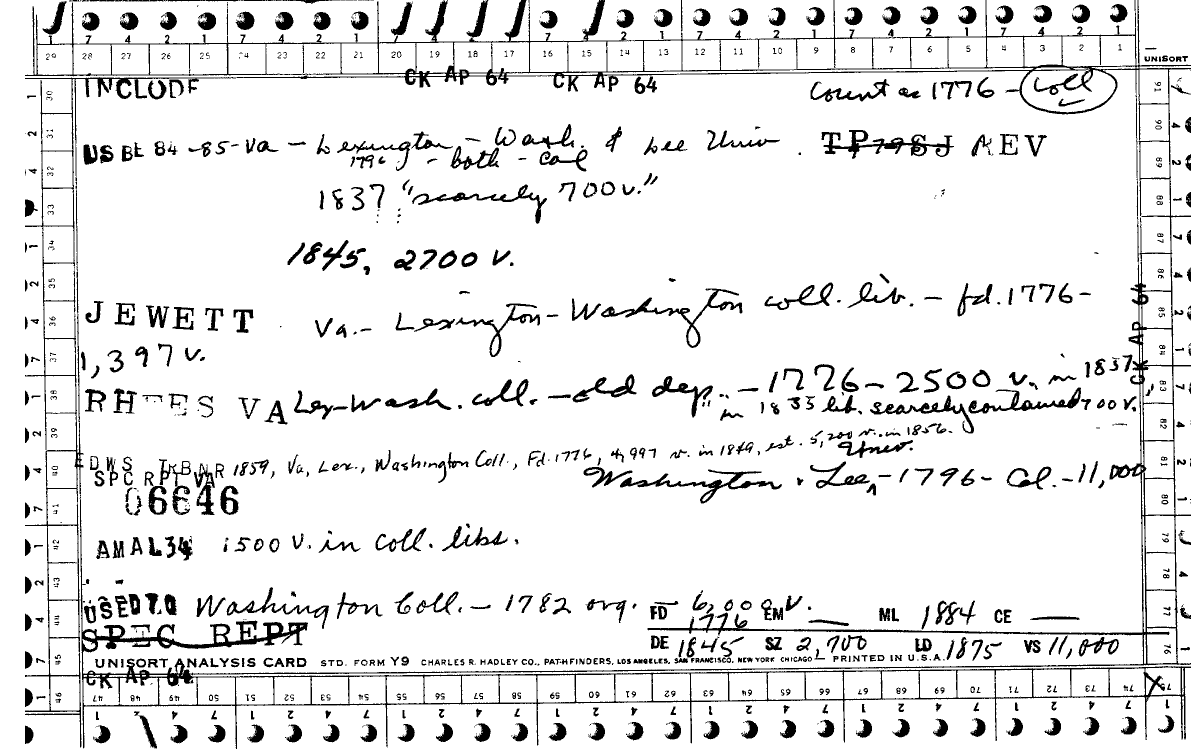 7 4 2 1 7 4 2 1 7 4 2 1 7 4 2 1 7 4 2 1 7 4 2 1 7 4 2 1
29 28 27 26 25 24 23 22 21 20 19 18 17 16 15 14 13 12 11 10 9 8 7 6 5 4 3 2 1
UNISORT
INCLUDE CK AP 64 CK AP 64 Count as 1776 - Coll
US BE 84-85-Va - Lexington - Wash. & Lee Univ. TP79SJ REV
1796 - both - Col
1837 "scarcely 700 v."
1845, 2700 v.
JEWETT Va.- Lexington-Washington coll. lib. - fd. 1776-
1,397 v.
CK AP 64
RHEES VA Lex-Wash. coll. - old dep. - 1776 - 2500 v. in 1837
in 1835 lib. scarcely contained 700 v.
EDWS TkBNR 1859, Va, Lex., Washington Coll., Fd. 1776, 4,997 v. in 1849, est. 5,200 v. in 1856.
SPC RPT VA Washington & Lee Univ. - 1796 - Col. - 11,000
06646
AMAL34 1500 v. in coll. libs.
USED70 Washington Coll. - 1782 org. - 6,000 v.
FD 1776 EM ML 1884 CE —
SPEC REPT
DE 1845 SZ 2,700 LD 1875 VS 11,000
UNISORT ANALYSIS CARD STD. FORM Y9 CHARLES R. HADLEY CO., PATHFINDERS, LOS ANGELES, SAN FRANCISCO, NEW YORK CHICAGO PRINTED IN U.S.A.
CK AP 64
46 47 48 49 50 51 52 53 54 55 56 57 58 59 60 61 62 63 64 65 66 67 68 69 70 71 72 73 74 75